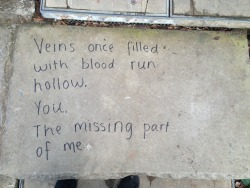 Veins once filled
with blood run
hollow.
You.
The missing part
of me.